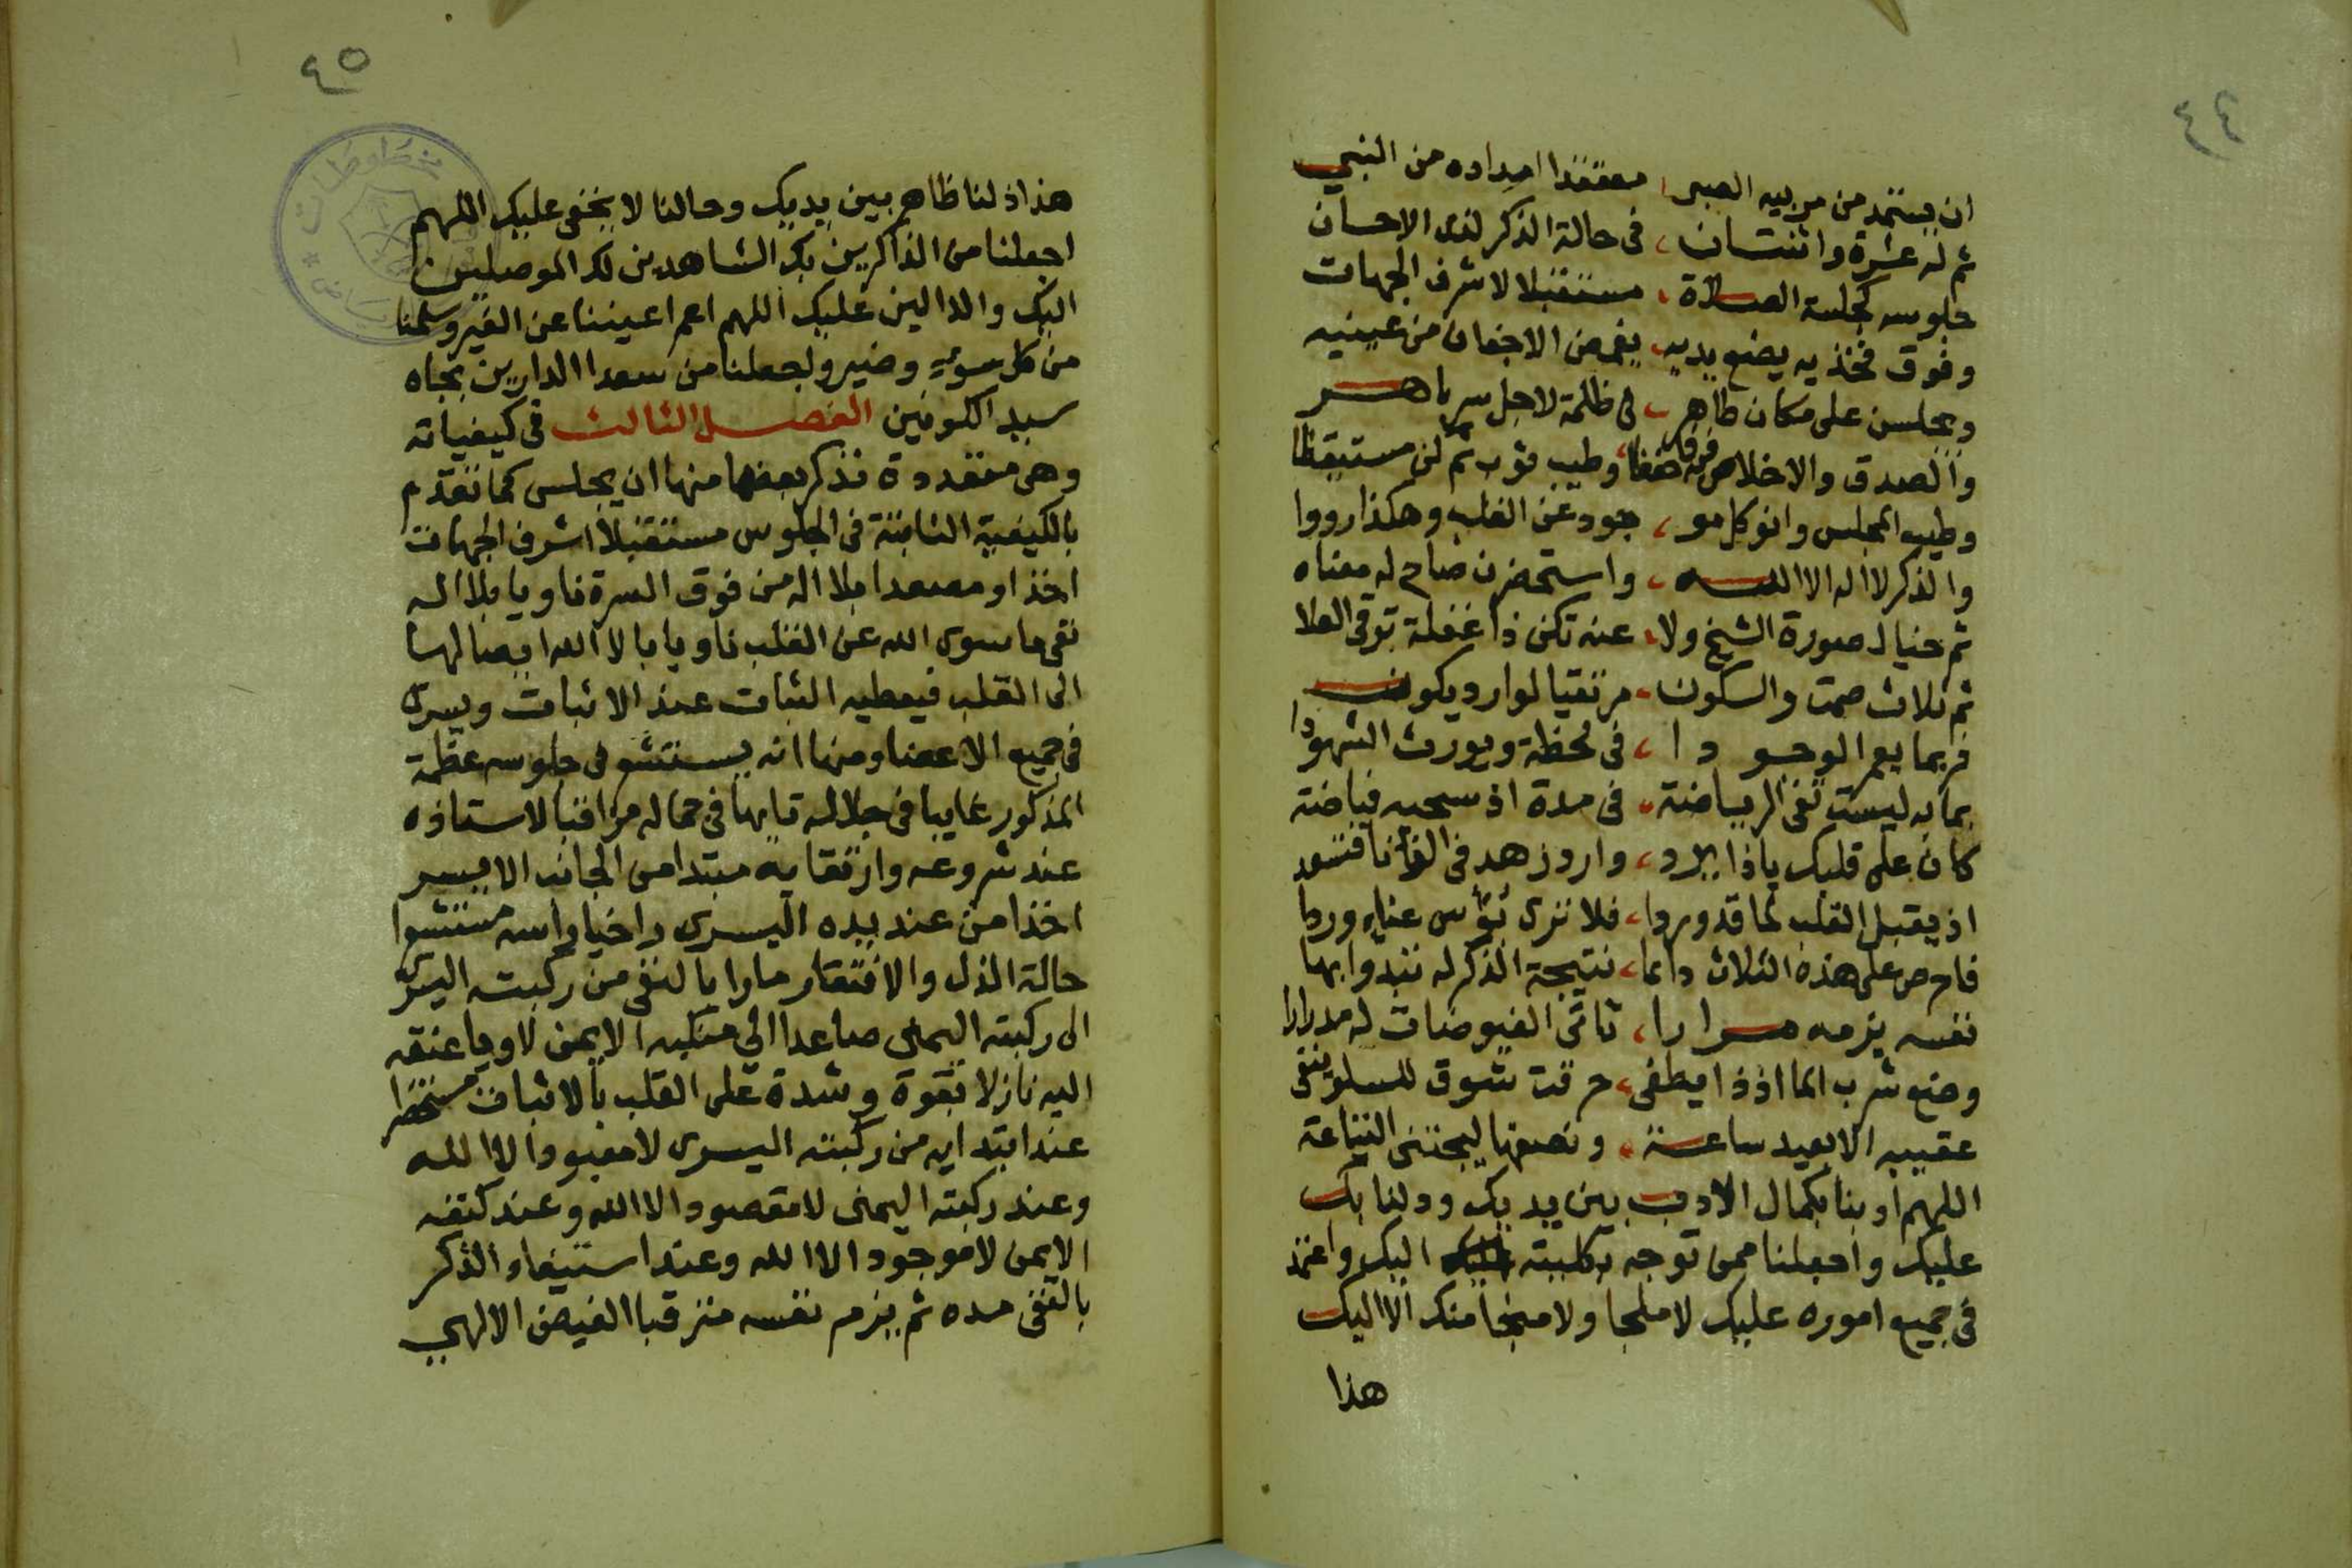 ٤٤
ان يستمد من مربيه الصبى، معتقدا امداده من النبي
ثم له عشرة واثنتان، فى حالة الذكر لذى الاحسان
جلوسه كجلسة الصلاة، مستقبلا لاشرف الجهات
وفوق فخذيه يضع يديه، يغمض الاجفان من عينيه
ويجلسن على مكان طاهر، فى ظلمة لاجل سر باهر
والصدق والاخلاص وطيب ثوب ثم لن مستيقظا
وطيب المجلس وانو كل مو، جود عن القلب وهكذا رووا
والذكر لا اله الا الله، واستحضرن صاح له معناه
ثم خيال صورة الشيخ ولا، عنه تكن ذا غفلة ترقى العلا
ثم ثلاث صمت والسكون، مرتقبا لوارد يكون
فربما يعمر الوجودا، فى لحظة ويورث الشهودا
بما به ليست تفى الرياضة، فى مدة اذ سحبه فياضة
كان على قلبك ياذا يرد، وارد زهد فى الفنا فتسود
اذ يقبل القلب لما قد وردا، فلا ترى بؤس عناء وردا
فاحرص على هذه الثلاث دائما، نتيجة الذكر له تبدوا بها
نفسه يزمه مرارا، تاتى الفيوضات له مدرارا
ومنع شرب الما اذ ذا يطفى، حرقت شوق للسلو ينفى
عقيبه الا بعيد ساعة، ونصفها ليجتنى
اللهم ادبنا بكمال الادب بين يديك ودلنا بك
عليك واجعلنا ممن توجه بكليته اليك واعتمد
فى جميع اموره عليك لا ملجا ولا منجا منك الا اليك
هذا
٤٥
هذا ذلنا ظاهر بين يديك وحالنا لا يخفى عليك اللهم
اجعلنا من الذاكرين بك الشاهدين لك الموصلين
اليك والدالين عليك اللهم اعم اعيننا عن الغير وسلمنا
من كل سوء وضير واجعلنا من سعدا الدارين بجاه
سيد الكونين الفصل الثالث فى كيفياته
وهى متعددة نذكر بعضها منها ان يجلس كما تقدم
بالكيفية الثامنة فى الجلوس مستقبلا اشرف الجهات
اخذا ومصعدا بلا اله من فوق السرة ناويا بلا اله
نفى ما سوى الله عن القلب ناويا بالا الله ايصالها
الى القلب فيعطيه الثبات عند الاثبات ويسرى
فى جميع الاعضا ومنها انه يستشعر فى جلوسه عظمة
المذكور غايبا فى جلاله تايها فى جماله مراقبا لاستاذه
عند شروعه وارتقايه مبتدا من الجانب الايسر
اخذا من عند يده اليسرى راخيا راسه مستشعرا
حالة الذل والافتقار مارا بالنفى من ركبته اليسرى
الى ركبته اليمنى صاعدا الى منكبه الايمن لاويا عنقه
اليه نازلا بقوة وشدة على القلب بالاثبات مستحضرا
عند ابتدايه من ركبته اليسرى لا معبود الا الله
وعند ركبته اليمنى لا مقصود الا الله وعند كتفه
الايمن لا موجود الا الله وعند استيفاء الذكر
بالنفى مده ثم يزم نفسه مترقبا الفيض الالهي
مخطوطات